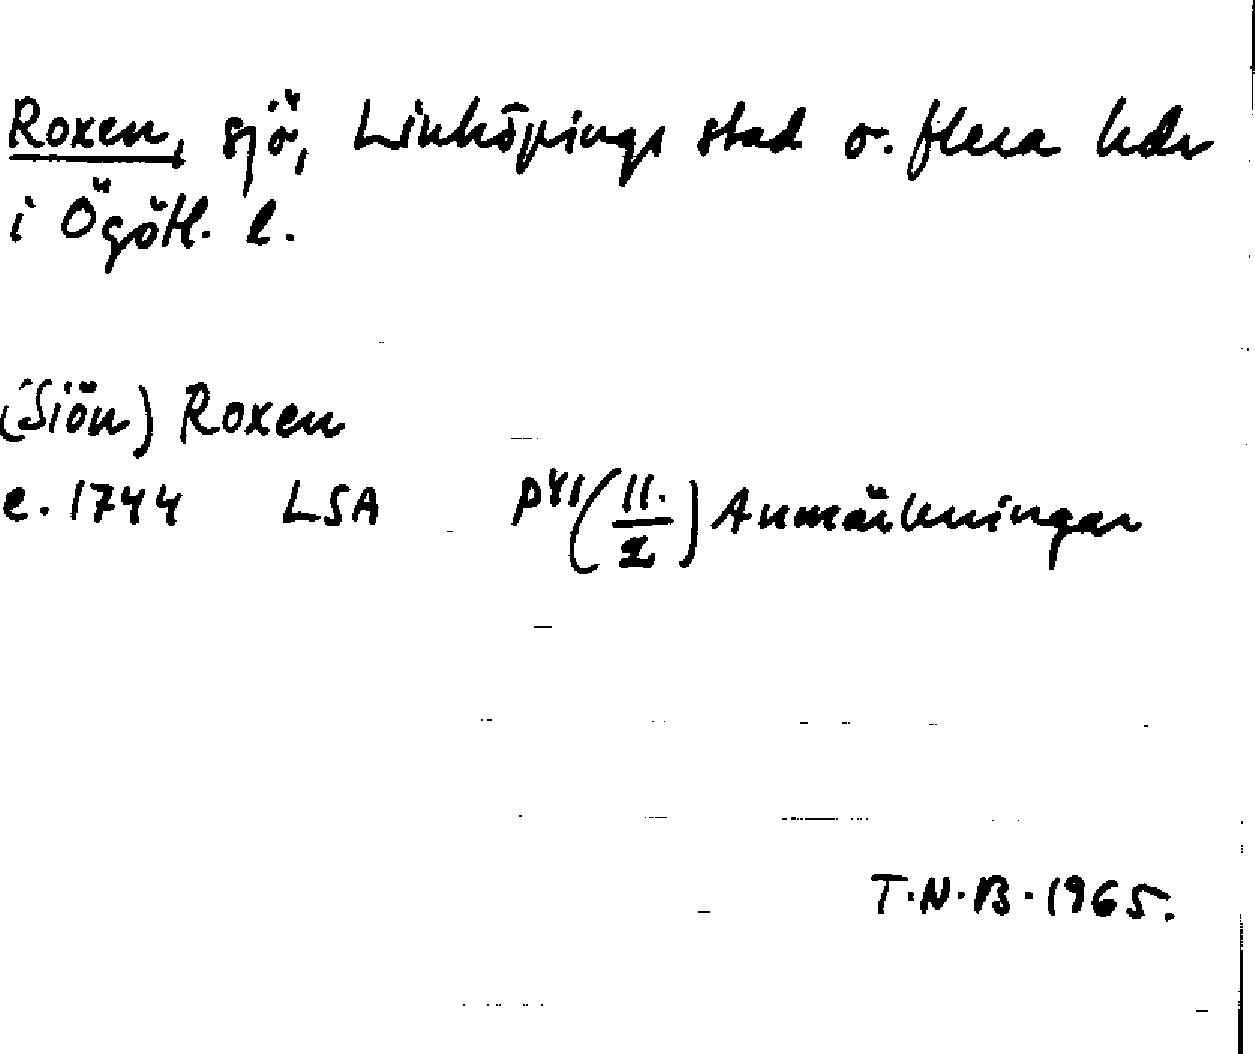 Roxen, sjö, Linköpings stad o. flera hdr
i Ögötl. l.
(Siön) Roxen
c. 1744 LSA P41 (11./2) Anmärkningar
T.N.B. 1965.